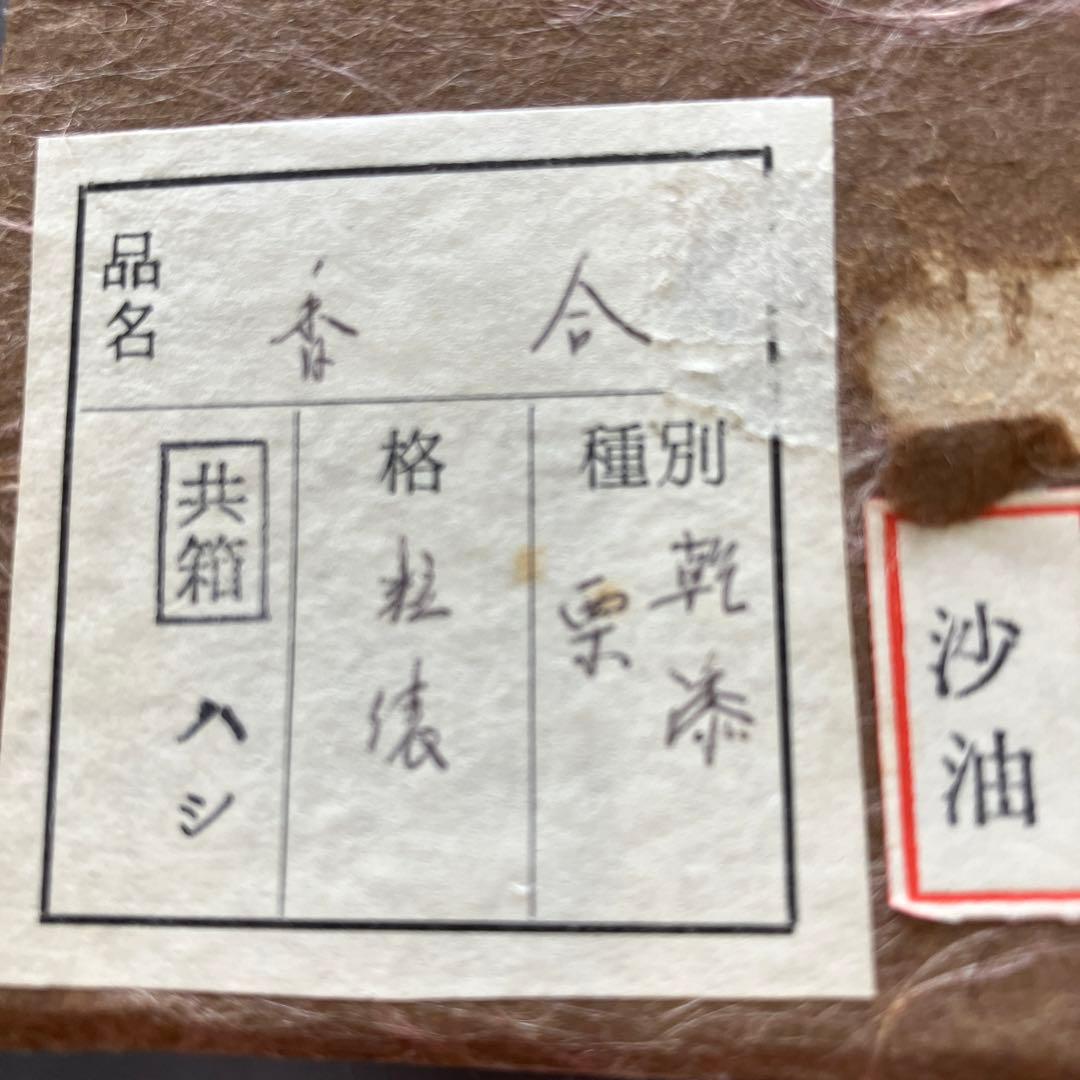 品名 香合
種別 乾漆 栗
格 粒儀
共箱 ハシ
沙油